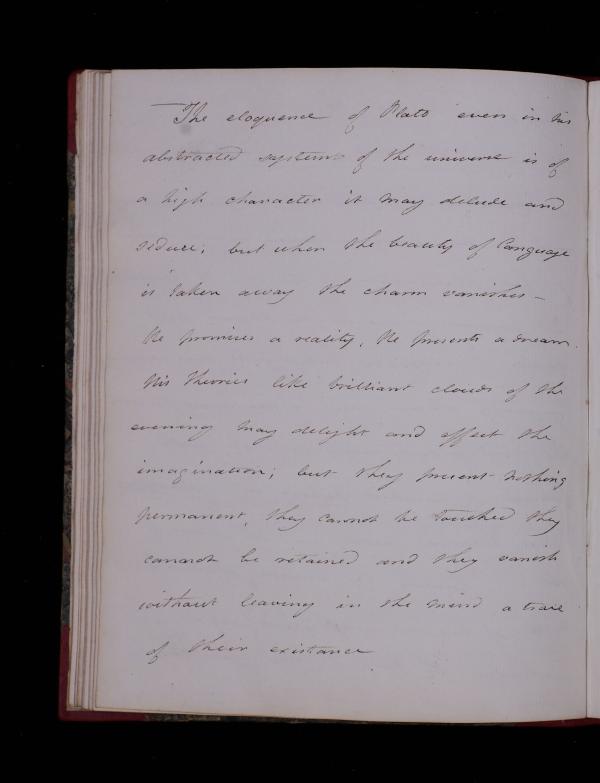 The eloquence of Plato even in his
abstracted systems of the universe is of
a high character it may delude and
seduce; but when the beauty of Language
is taken away the charm vanishes –
He promises a reality, He presents a dream.
His theories like brilliant clouds of the
evening may delight and affect the
imagination; but they present nothing
permanent, they cannot be touched they
cannot be retained and they vanish
without leaving in the mind a trace
of their existance